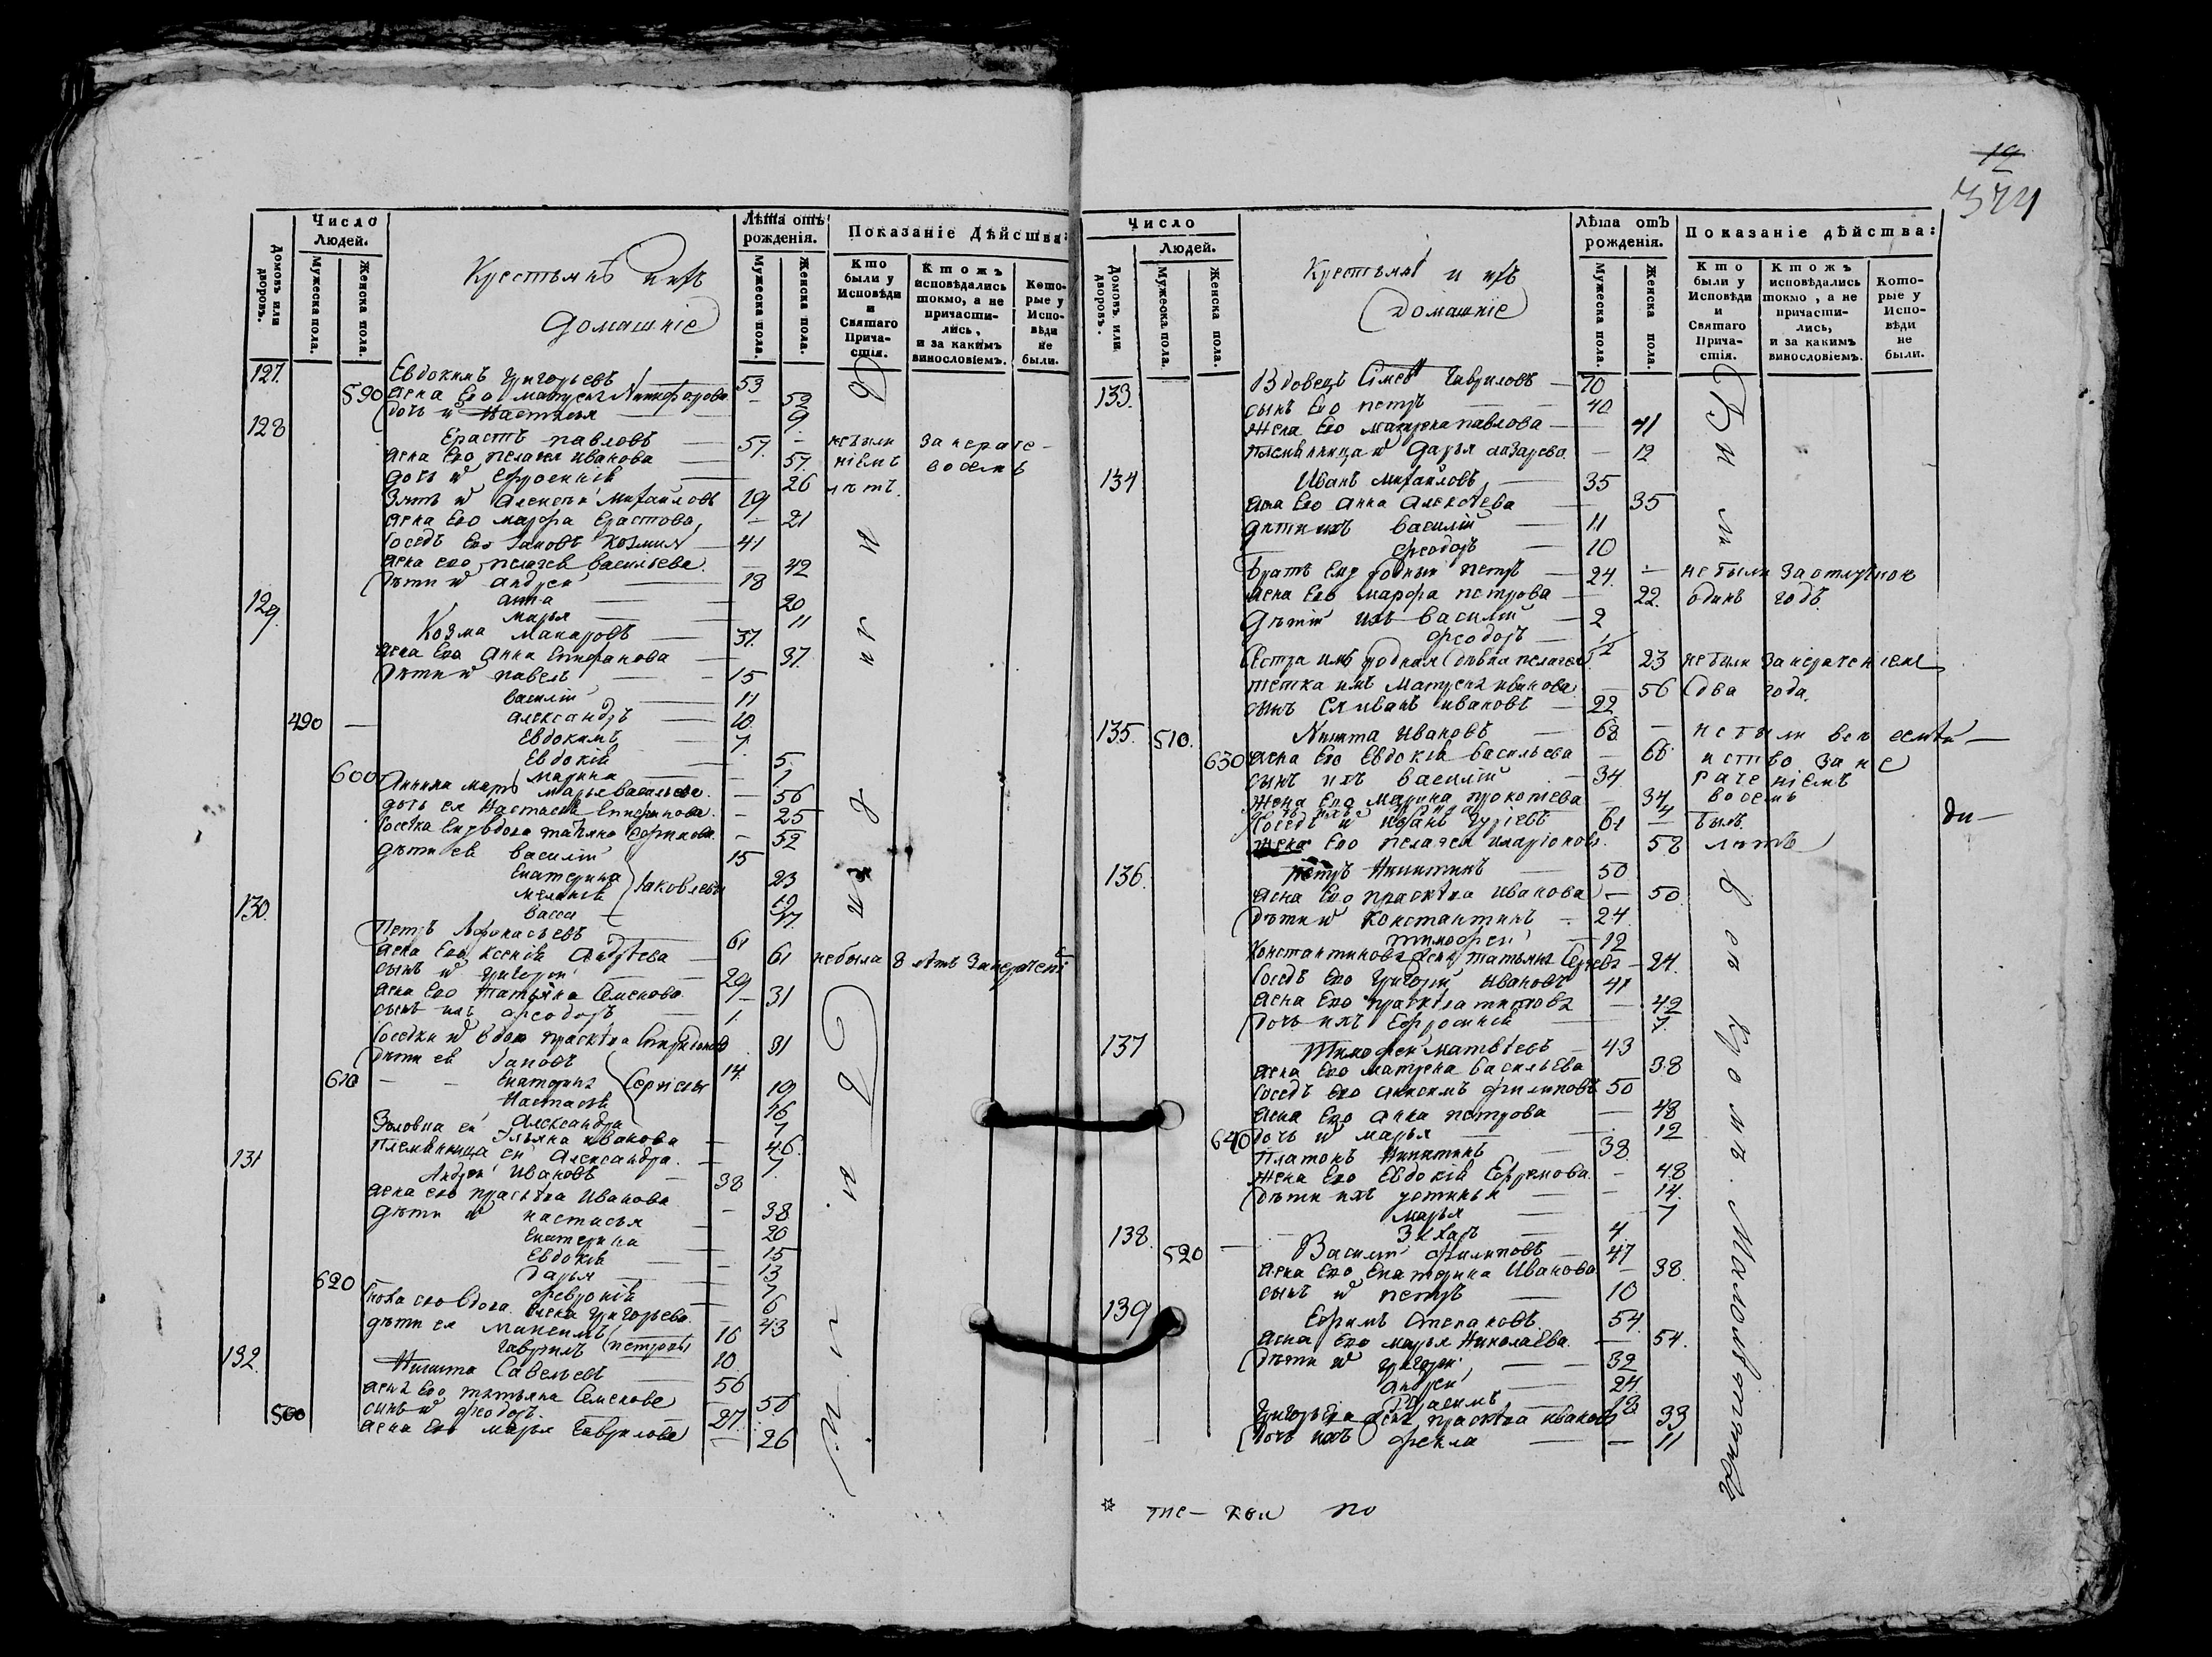 Число
Людей.
Домовъ или дворовъ.
Мужеска пола.
Женска пола.
Крестьянъ и ихъ
домашніе
Лѣта отъ рожденія.
Мужеска пола.
Женска пола.
Показаніе Дѣйства:
Кто были у Исповѣди и Святаго Прича-стія.
Ктожъ исповѣдались токмо, а не причасти-лись, и за какимъ винословіемъ.
Кото-рые у Испо-вѣди не были.
127. Евдокимъ Григорьевъ 53
590 жена Его Матрена Никифорова — 52
дочь и Настасья 9
128 Ерастъ павловъ 57. — небыли за нераче-
жена Его пелагея иванова 57. ніемъ восемь
дочь и Ефросинія 26 лѣтъ.
Зять и Алексѣй Михайловъ 19
жена Его марфа Ерастова — 21
соседъ Его Іаковъ Козмин 41
жена его пелагея васильева — 42
дѣти и андрей 18
анна 20
марья 11
129. Козма макаровъ 37.
жена Его Анна Епифанова 37.
дѣти и павелъ 15
василій 11
490 — александръ 10
Евдокимъ 7.
Евдокія 5.
600 марина 1
мать марья васильева — 56
дочь ея Настасья Епифанова — 25
соседка вдова татьяна — 52
дѣти ея василій 15
Екатерина 23
меланія Іаковлевы 19
васса 17.
130. Петръ Афонасьевъ 61
жена Его ксенія Андрѣева 61 небыла 8 лѣтъ Занерачені
сынъ и григорій 29
жена Его Татьяна Семенова — 31
сынъ ихъ феодоръ 1.
соседка и вдова прасковья Спиридонова 31
дѣти ея Іаковъ 14.
610 — — Екатерина Сергіевы 19
Настасья 16
Александра 7
Золовка ей Ульяна иванова — 46.
племянница ей Александра. — 7.
131 Андрей Ивановъ 38
жена его прасковья Иванова — 38
дѣти и настасья 20
Екатерина 15
Евдокія 13
620 дарья 7
февронія 6
сноха его вдова Григорьева. 43
дѣти ея Максимъ 16
Гаврилъ (петровы 10
132. Никита Савельевъ 56
жена Его татьяна Семенова 56
500 сынъ и феодоръ. 27.
жена Его марья Гаврилова — 26
12
374
Число
Людей.
Домовъ или дворовъ.
Мужеска пола.
Женска пола.
Крестьянъ и ихъ
Домашніе
Лѣта отъ рожденія.
Мужеска пола.
Женска пола.
Показаніе дѣйства:
Кто были у Исповѣди и Святаго Прича-стія.
Ктожъ исповѣдались токмо, а не причасти-лись, и за какимъ винословіемъ.
Кото-рые у Испо-вѣди не были.
133. Вдовецъ Гавриловъ — 70
сынъ Его петръ 40
Жена Его матрена павлова — 41
племянница и дарья лазарева — 12
134 Иванъ михайловъ 35
жена Его анна алексѣева — 35
дѣти ихъ василій 11
феодоръ 10
братъ Ему родный петръ — 24. — не были За отлучкою
жена Его марфа петрова — 22. одинъ годъ.
дѣти ихъ василій — 2
феодоръ — 1/2
Сестра имъ родная дѣвка пелагея 23 не были За нерачениемъ
тетка имъ Матрена иванова — 56 два года.
сынъ Ея иванъ ивановъ 22
135. 510. Никита ивановъ 68 — не были
630 жена Его Евдокія васильева — 66 за не
сынъ ихъ василій — 34 раченіемъ
Жена Его Марина прокопіева — 34 восемь
4
соседъ и иванъ Гуріевъ 61 —
жена Его пелагея иларіонова. 58 лѣтъ
ди—
136. петръ Никитинъ 50
жена Его прасковья Иванова — 50.
дѣти и Константинъ — 24.
тимофей 12
Константинова жена татьяна — 24.
соседъ его григорій Ивановъ 41
жена Его прасковья титова — 42
дочь ихъ Ефросинія 7.
137 Тимофей матвѣевъ 43
жена Его матрена васильева 38
соседъ его анисимъ филиповъ 50
жена Его анна петрова — 48
640 дочь и марья 12
платонъ Никитинъ 38
Жена Его Евдокія Ефремова. — 48
дѣти ихъ устинья — 14.
марья 7
Захаръ 4.
138. 520 — Василій филиповъ — 47
жена Его Екатерина Иванова — 38.
сынъ и петръ 10
139 Ефимъ Степановъ 54.
жена его марья Николаева — 54.
дѣти и григорій 32
андрей 24.
Герасимъ 13
Григорьева жена прасковья иванова 33
дочь ихъ фекла — 11